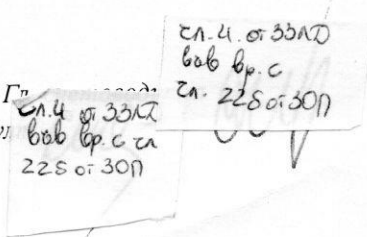 чл.4. от ЗЗЛД
във вр. с
чл. 22б от ЗОП
чл.4 от ЗЗЛД
във вр. с чл
22б от ЗОП